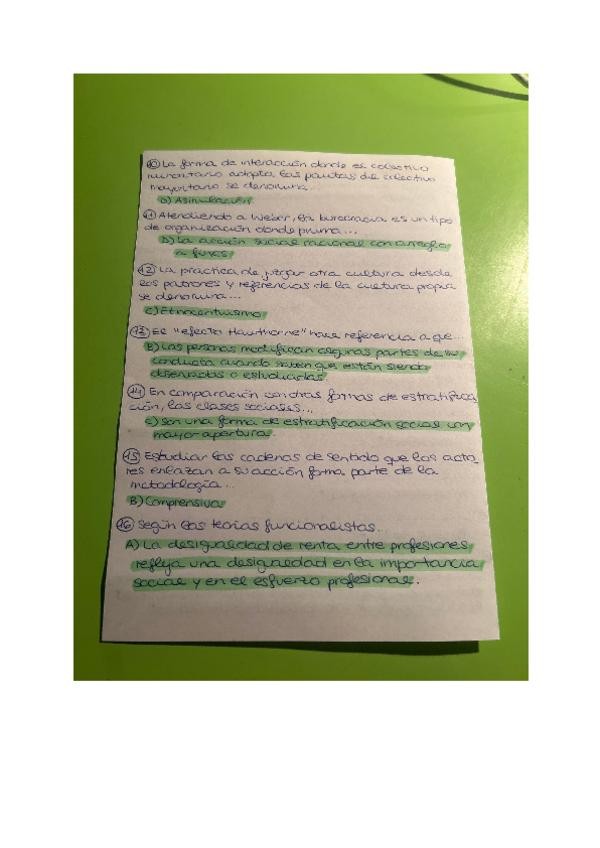 10 La forma de interacción donde el colectivo
minoritario adopta las pautas del colectivo
mayoritario se denomina...
D) Asimilación
11 Atendiendo a Weber, la burocracia es un tipo
de organización donde prima...
D) La acción social racional con arreglo
a fines
12 La práctica de juzgar otra cultura desde
los patrones y referencias de la cultura propia
se denomina...
C) Etnocentrismo
13 El "efecto Hawthorne" hace referencia a que...
B) Las personas modifican algunas partes de su
conducta cuando saben que están siendo
observadas o estudiadas
14 En comparación con otras formas de estratifica
ción, las clases sociales...
C) Son una forma de estratificación social con
mayor apertura.
15 Estudiar las cadenas de sentido que los acto
res enlazan a su acción forma parte de la
metodología...
B) Comprensiva
16 Según las teorías funcionalistas...
A) La desigualdad de renta entre profesiones
refleja una desigualdad en la importancia
social y en el esfuerzo profesional.